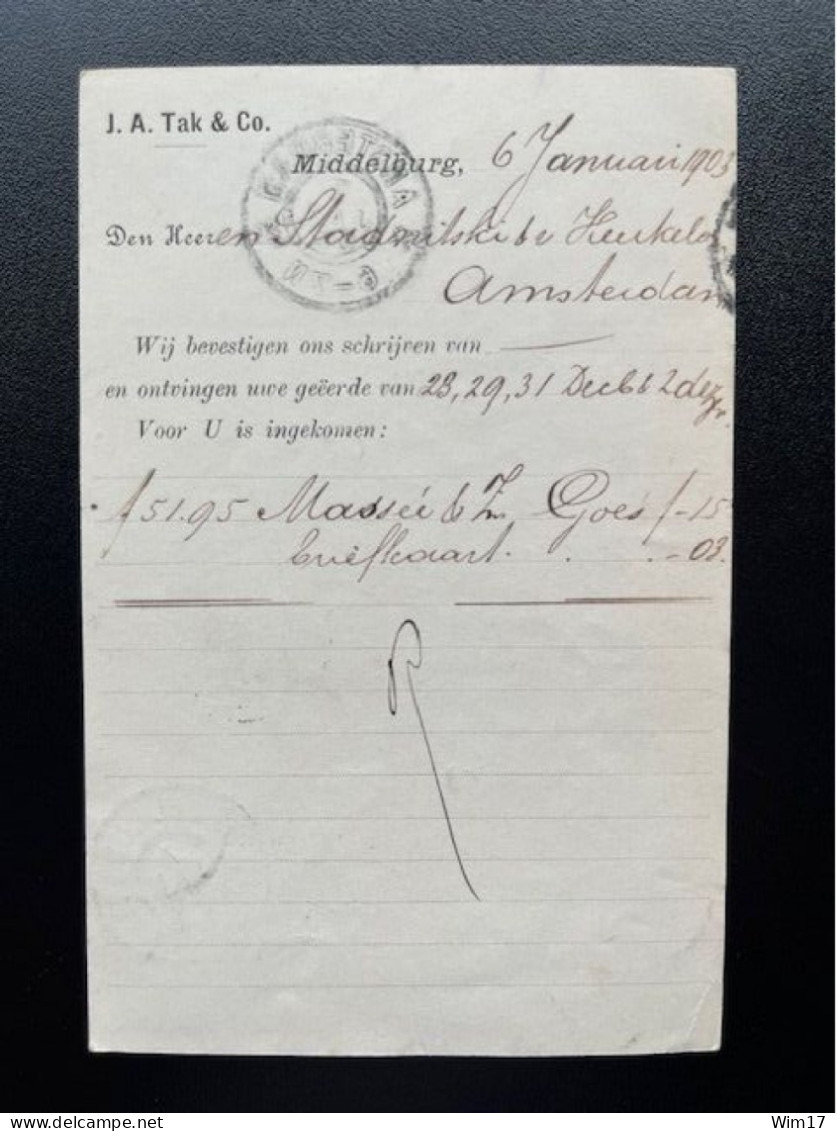 J. A. Tak & Co.
Middelburg, 6 Januari 1903
Den Heeren Stadnitski & v Heukelom
Amsterdam
Wij bevestigen ons schrijven van
en ontvingen uwe geëerde van 28, 29, 31 Dec & 2 dezr.
Voor U is ingekomen:
f 51.95 Massee & Zn Goes f -15
briefkaart . . . -03.
Wim17